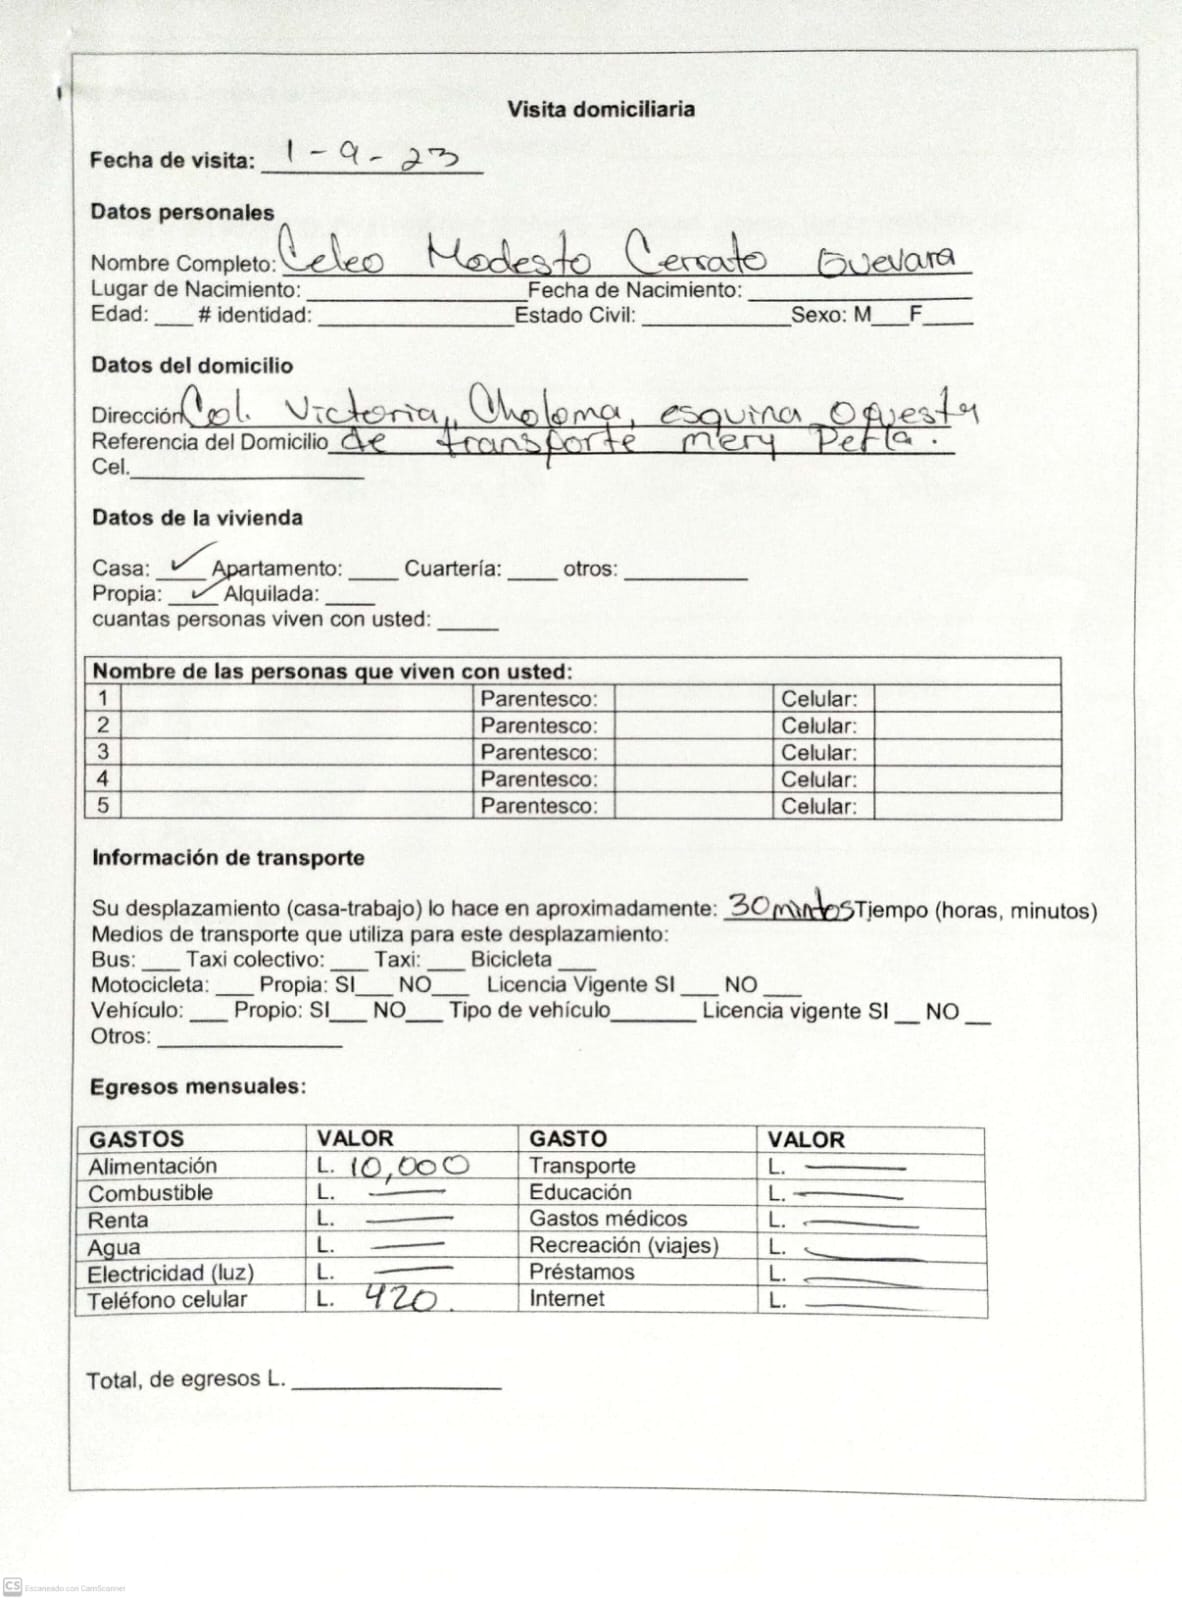 Visita domiciliaria
Fecha de visita: 1-9-23
Datos personales
Nombre Completo: Celeo Modesto Cerrato Guevara
Lugar de Nacimiento: ____ Fecha de Nacimiento: ____
Edad: ____ # identidad: ____ Estado Civil: ____ Sexo: M____F____
Datos del domicilio
Dirección Col. Victoria, Choloma, esquina opuesta
Referencia del Domicilio de transporte mery Perla.
Cel.____
Datos de la vivienda
Casa: ✓ Apartamento: ____ Cuartería: ____ otros: ____
Propia: ✓ Alquilada: ____
cuantas personas viven con usted: ____
Nombre de las personas que viven con usted:
1 Parentesco: Celular:
2 Parentesco: Celular:
3 Parentesco: Celular:
4 Parentesco: Celular:
5 Parentesco: Celular:
Información de transporte
Su desplazamiento (casa-trabajo) lo hace en aproximadamente: 30 mintos Tiempo (horas, minutos)
Medios de transporte que utiliza para este desplazamiento:
Bus: ____ Taxi colectivo: ____ Taxi: ____ Bicicleta ____
Motocicleta: ____ Propia: SI____ NO____ Licencia Vigente SI ____ NO ____
Vehículo: ____ Propio: SI____ NO____ Tipo de vehículo____ Licencia vigente SI __ NO __
Otros: ____
Egresos mensuales:
GASTOS VALOR GASTO VALOR
Alimentación L. 10,000 Transporte L. —
Combustible L. — Educación L. —
Renta L. — Gastos médicos L. —
Agua L. — Recreación (viajes) L. —
Electricidad (luz) L. — Préstamos L. —
Teléfono celular L. 420. Internet L. —
Total, de egresos L. ____
CS Escaneado con CamScanner